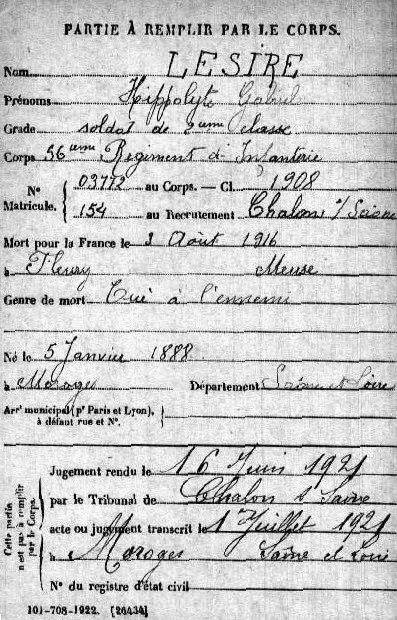 PARTIE À REMPLIR PAR LE CORPS.
Nom LESIRE
Prénoms Hippolyte Gabriel
Grade soldat de 2eme classe
Corps 56eme Régiment d'Infanterie
N° Matricule. { 03772 au Corps. — Cl. 1908
154 au Recrutement Chalon s/ Saône
Mort pour la France le 3 Août 1916
à Fleury Meuse
Genre de mort Tué à l'ennemi
Né le 5 Janvier 1888
à Moroges Département Saône et Loire
Arrt municipal (pr Paris et Lyon),
à défaut rue et N°.
Cette partie n'est pas à remplir par le Corps.
Jugement rendu le 16 Juin 1921
par le Tribunal de Chalon s Saône
acte ou jugement transcrit le 1 Juillet 1921
à Moroges Saône et Loire
N° du registre d'état civil
101-708-1922. [26434]